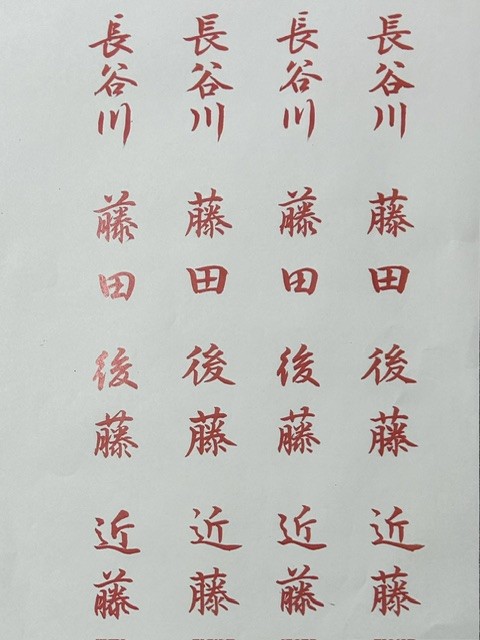 長谷川
藤田
後藤
近藤
長谷川
藤田
後藤
近藤
長谷川
藤田
後藤
近藤
長谷川
藤田
後藤
近藤